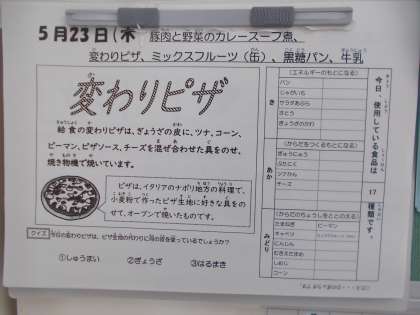 5月23日(木) 豚肉と野菜のカレースープ煮、
変わりピザ、ミックスフルーツ（缶）、黒糖パン、牛乳
変わりピザ
給食の変わりピザは、ぎょうざの皮に、ツナ、コーン、
ピーマン、ピザソース、チーズを混ぜ合わせた具をのせ、
焼き物機で焼いています。
ピザは、イタリアのナポリ地方の料理で、
小麦粉で作ったピザ生地に好きな具をの
せて、オーブンで焼いたものです。
クイズ 今日の変わりピザは、ピザ生地の代わりに何の皮を使っているでしょうか？
①しゅうまい ②ぎょうざ ③はるまき
今日、使用している食品は
17
種類です。
き
(エネルギーのもとになる)
パン
じゃがいも
サラダあぶら
さとう
ぎょうざのかわ
あか
(からだをつくるもとになる)
ぎゅうにゅう
ぶたにく
ツナかん
チーズ
みどり
(からだのちょうしをととのえる)
たまねぎ ピーマン
キャベツ
にんじん
むきえだまめ
しめじ
コーン